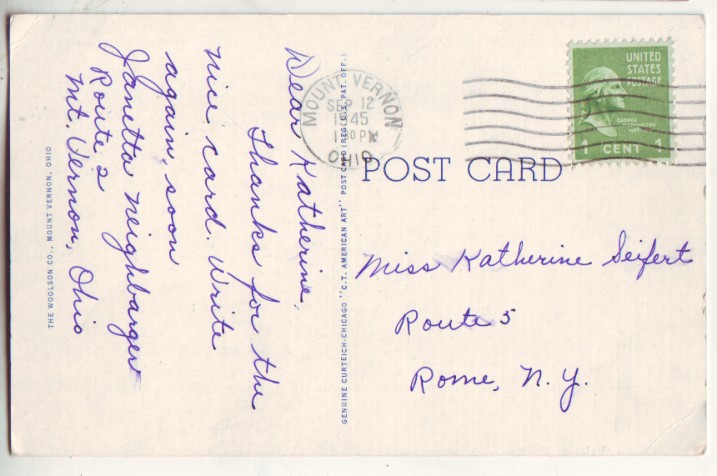 Dear Katherine,
Thanks for the
nice card. Write
again, soon
Janetta Neighbarger
Route 2
Mt. Vernon, Ohio
THE WOOLSON CO., MOUNT VERNON, OHIO
GENUINE CURTEICH-CHICAGO "C.T. AMERICAN ART" POST CARD (REG. U.S. PAT. OFF.)
MOUNT VERNON
SEP 12
1945
PM
OHIO
UNITED
STATES
POSTAGE
1 CENT 1
POST CARD
Miss Katherine Seifert
Route 5
Rome, N.Y.